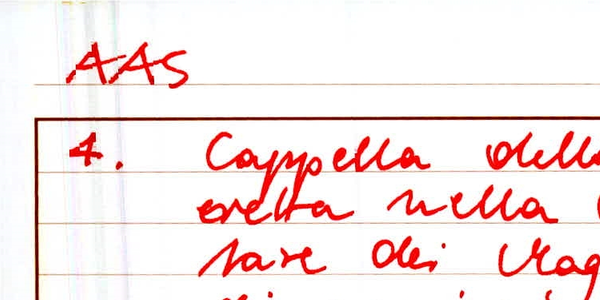 AAS
4. Cappella dell
eretta nella
tare dei Mag